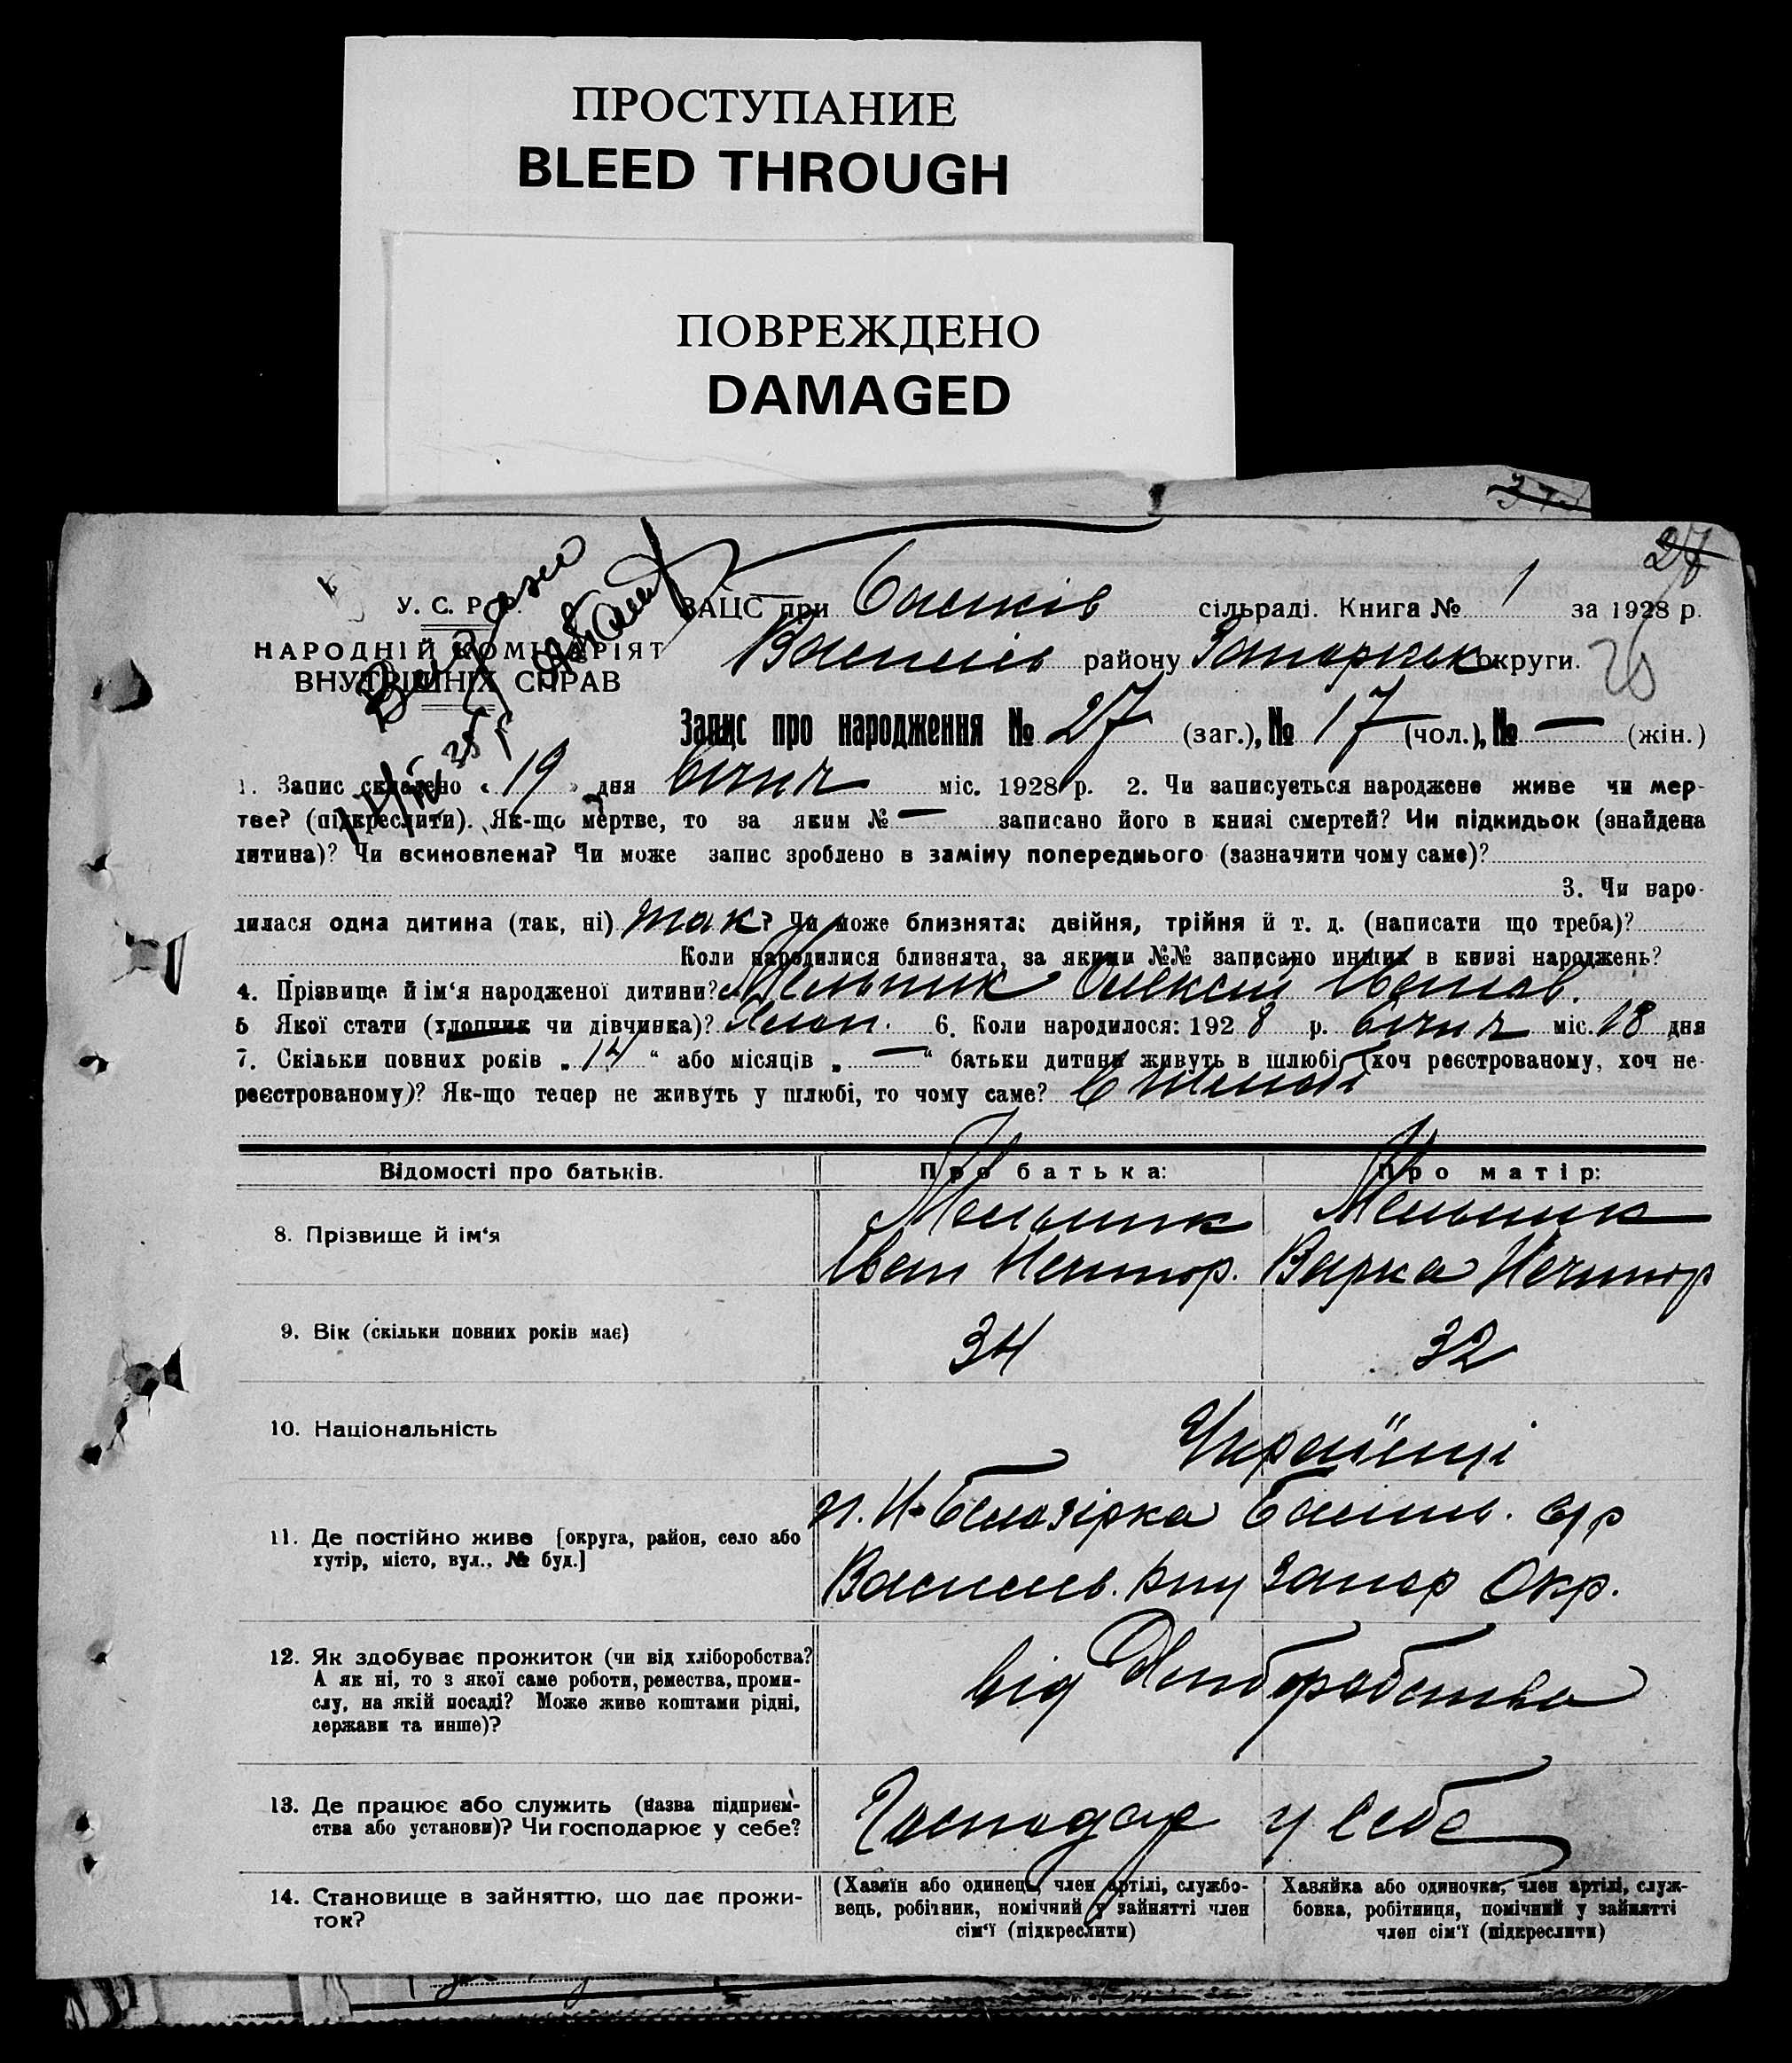 ПРОСТУПАНИЕ
BLEED THROUGH
ПОВРЕЖДЕНО
DAMAGED
27
У. С. Р. Р.
НАРОДНІЙ КОМІСАРІЯТ
ВНУТРІШНІХ СПРАВ
ЗАЦС при сільраді. Книга № 1 за 1928 р.
Василів району Запоріжськ округи.
26
Запис про народження № 27 (заг.), № 17 (чол.), № — (жін.)
1. Запис складено « 19 » дня січня міс. 1928 р. 2. Чи записується народжене живе чи мер-
тве? (підкреслити). Як-що мертве, то за яким № — записано його в книзі смертей? Чи підкидьок (знайдена
дитина)? Чи всиновлена? Чи може запис зроблено в заміну попереднього (зазначити чому саме)?
3. Чи наро-
дилася одна дитина (так, ні) так? Чи може близнята: двійня, трійня й т. д. (написати що треба)?
Коли народилися близнята, за якими №№ записано инших в книзі народжень?
4. Прізвище й ім'я народженої дитини? Мельник Олексій Іванов.
5 Якої стати (хлопчик чи дівчинка)? Хлоп. 6. Коли народилося: 1928 р. січня міс. 18 дня
7. Скільки повних років „ 14 “ або місяців „ — “ батьки дитини живуть в шлюбі (хоч реєстрованому, хоч не-
реєстрованому)? Як-що тепер не живуть у шлюбі, то чому саме?
Відомості про батьків. Про батька: Про матір:
8. Прізвище й ім'я Мельник Іван Нечипор. Мельник Варка Нечипор
9. Вік (скільки повних років має) 34 32
10. Національність Українці
11. Де постійно живе [округа, район, село або
хутір, місто, вул., № буд.]
Н-Білозірка с/р
Василів. р-ну Запор Окр.
12. Як здобуває прожиток (чи від хліборобства?
А як ні, то з якої саме роботи, ремества, проми-
слу, на якій посаді? Може живе коштами рідні,
держави та инше)?
від Хліборобства
13. Де працює або служить (назва підприєм-
ства або установи)? Чи господарює у себе?
Господар у себе
14. Становище в зайняттю, що дає прожи-
ток?
(Хазяїн або одинець, член артілі, службо-
вець, робітник, помічний у зайнятті член
сім'ї (підкреслити)
Хазяйка або одиночка, член артілі, служ-
бовка, робітниця, помічний у зайнятті
член сім'ї (підкреслити)